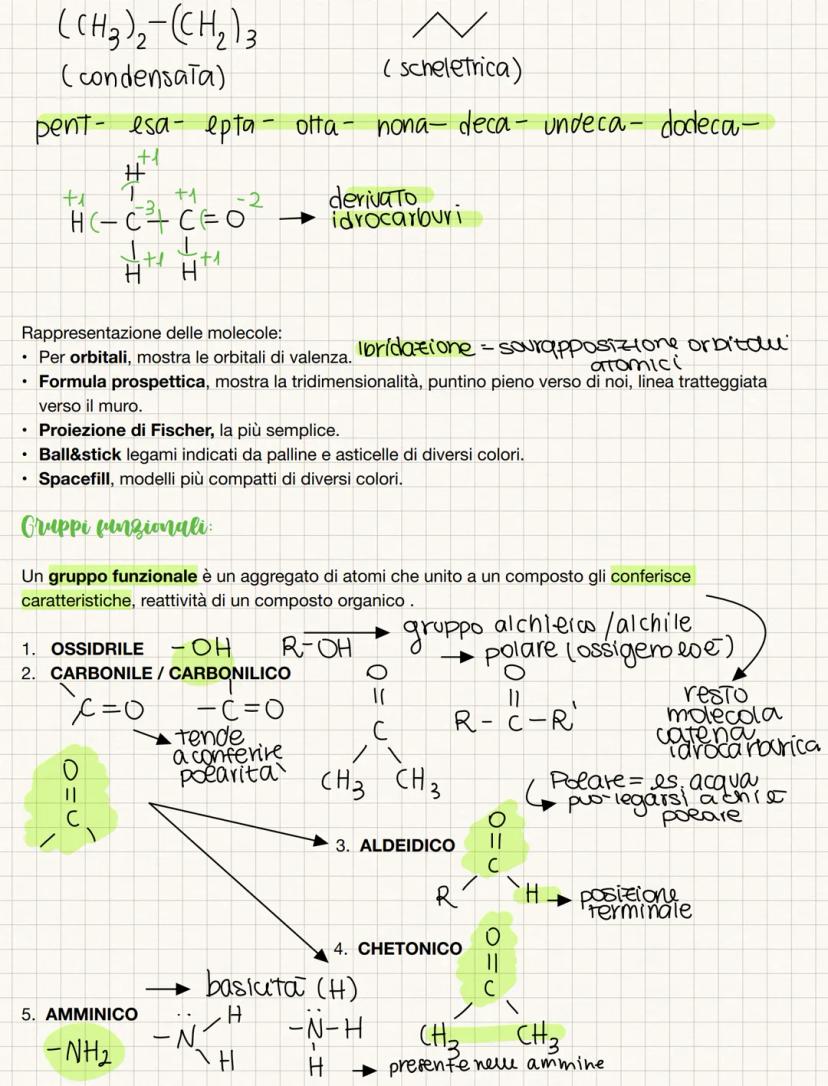 (CH₃)₂-(CH₂)₃
(condensata)
(scheletrica)
pent- esa- epta- otta- nona- deca- undeca- dodeca-
H +1
+1 -3 +1 -2
H - C - C = O → derivato idrocarburi
H +1 H +1
Rappresentazione delle molecole:
• Per orbitali, mostra le orbitali di valenza. Ibridazione = sovrapposizione orbitali atomici
• Formula prospettica, mostra la tridimensionalità, puntino pieno verso di noi, linea tratteggiata
verso il muro.
• Proiezione di Fischer, la più semplice.
• Ball&stick legami indicati da palline e asticelle di diversi colori.
• Spacefill, modelli più compatti di diversi colori.
Gruppi funzionali:
Un gruppo funzionale è un aggregato di atomi che unito a un composto gli conferisce
caratteristiche, reattività di un composto organico .
1. OSSIDRILE -OH R-OH → gruppo alchilico/alchile
→ polare (ossigeno
2. CARBONILE / CARBONILICO
C=O -C=O
→ tende
a conferire
polarità
O
||
C
CH₃ CH₃
O
||
R-C-R'
resto
molecola
catena
idrocarburica
O
||
C
Polare = es. acqua
può legarsi a chi è
polare
3. ALDEIDICO
O
||
C
R H → posizione
terminale
4. CHETONICO
O
||
C
CH₃ CH₃
→ basicità (H)
5. AMMINICO
-NH₂
-N H
H
-N-H
H → presente nelle ammine